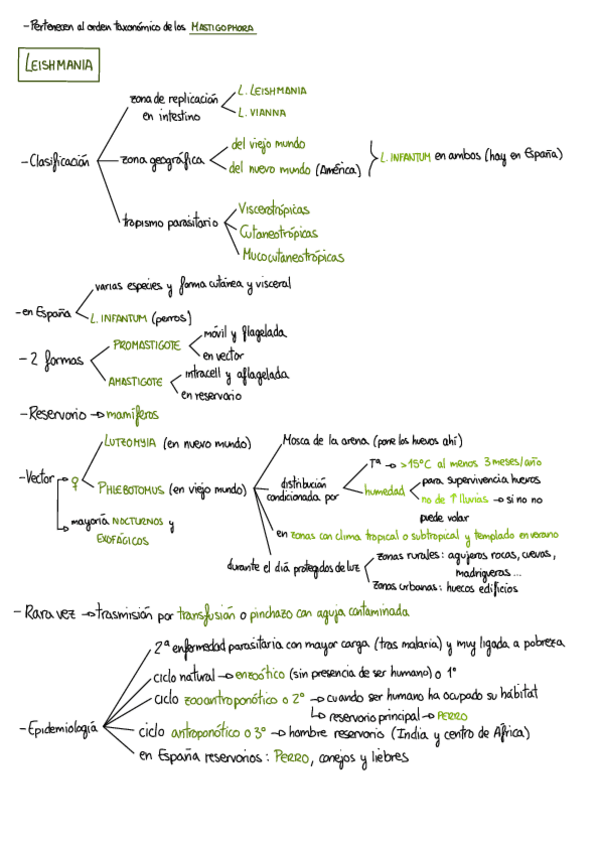 - Pertenecen al orden taxonómico de los MASTIGOPHORA
LEISHMANIA
- Clasificación
zona de replicación en intestino
L. LEISHMANIA
L. VIANNA
zona geográfica
del viejo mundo
del nuevo mundo (América)
L. INFANTUM en ambos (hay en España)
tropismo parasitario
Viscerotrópicas
Cutaneotrópicas
Mucocutaneotrópicas
- en España
varias especies y forma cutánea y visceral
L. INFANTUM (perros)
- 2 formas
PROMASTIGOTE
móvil y flagelada
en vector
AMASTIGOTE
intracell y aflagelada
en reservorio
- Reservorio → mamíferos
- Vector
♀
LUTZOMYIA (en nuevo mundo)
PHLEBOTOMUS (en viejo mundo)
mayoría NOCTURNOS y
EXOFÁGICOS
Mosca de la arena (pone los huevos ahí)
distribución
condicionada por
Tª → >15ºC al menos 3 meses/año
humedad
para supervivencia huevos
no de ↑ lluvias → si no no
puede volar
en zonas con clima tropical o subtropical y templado en verano
durante el día protegidos de luz
zonas rurales: agujeros rocas, cuevas,
madrigueras...
zonas urbanas: huecos edificios
- Rara vez → trasmisión por transfusión o pinchazo con aguja contaminada
- Epidemiología
2ª enfermedad parasitaria con mayor carga (tras malaria) y muy ligada a pobreza
ciclo natural → enzoótico (sin presencia de ser humano) o 1º
ciclo zooantroponótico o 2º → cuando ser humano ha ocupado su hábitat
↳ reservorio principal → PERRO
ciclo antroponótico o 3º → hombre reservorio (India y centro de África)
en España reservorios: PERRO, conejos y liebres